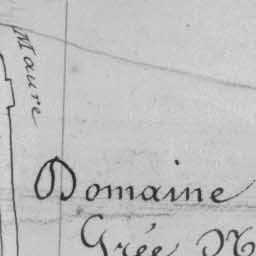 Maure
Domaine
Grée N